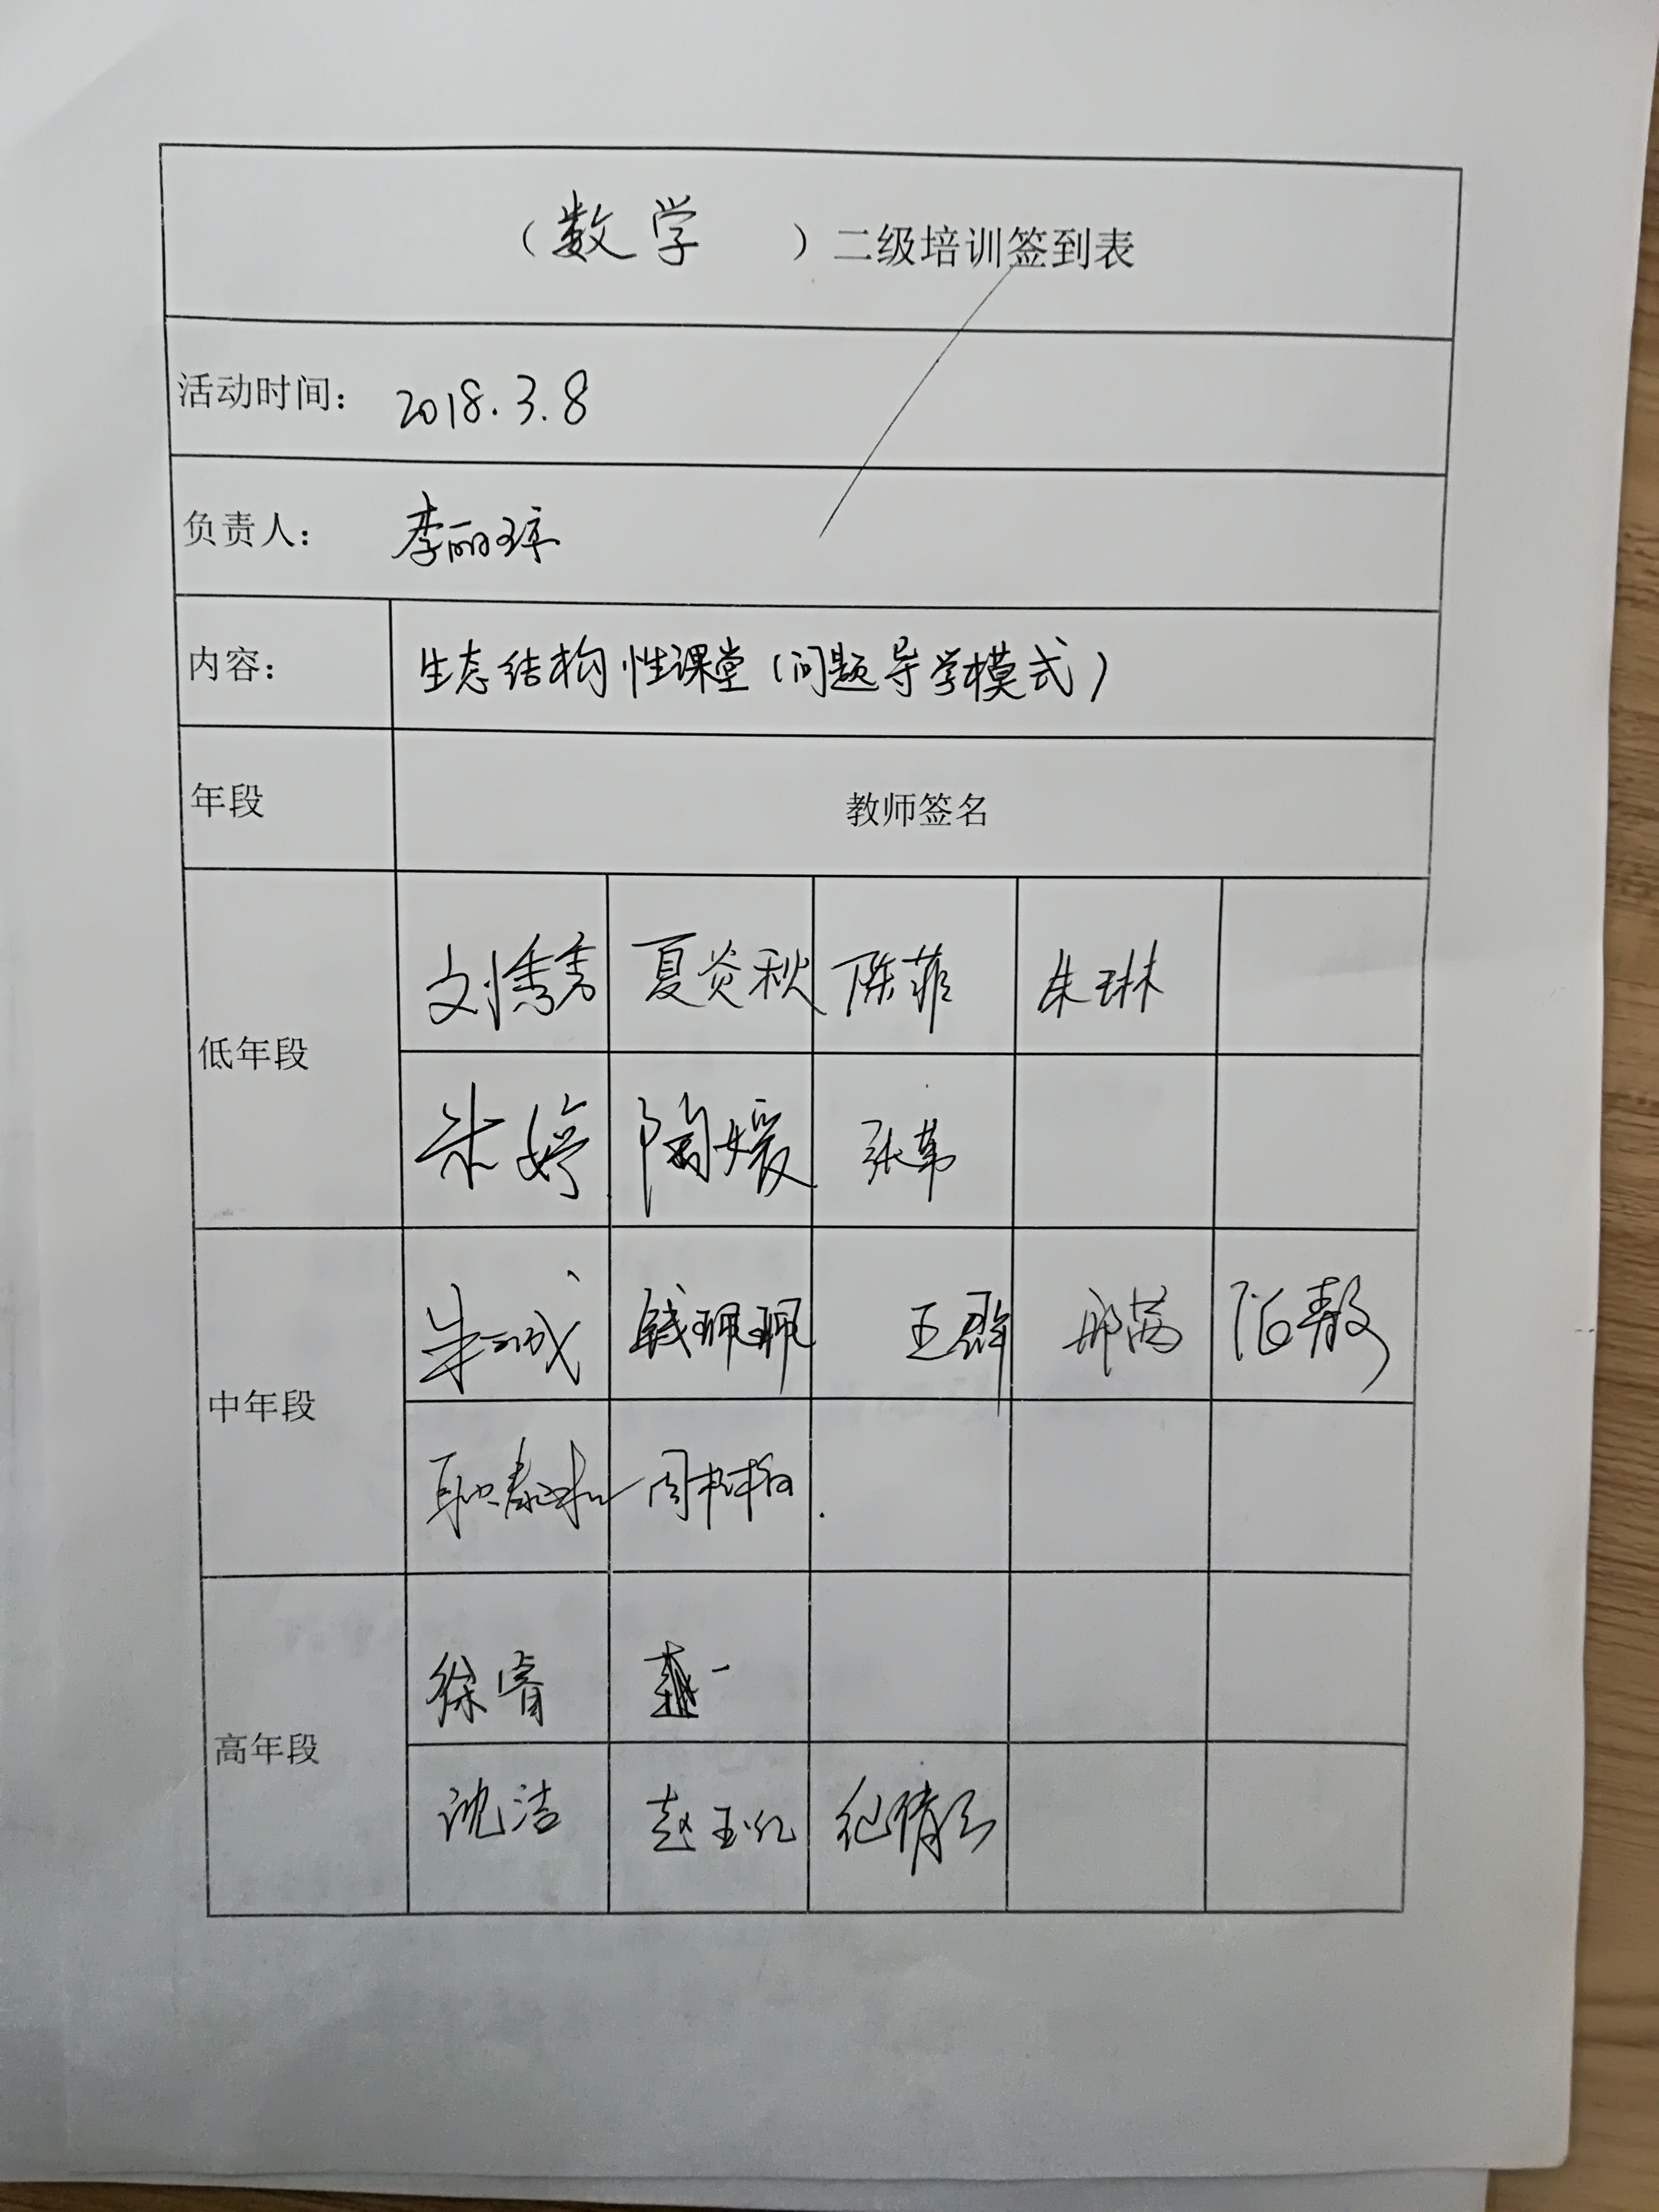 （数学 ）二级培训签到表
活动时间： 2018.3.8
负责人： 李丽琼
内容： 生态结构性课堂（问题导学模式）
年段 教师签名
低年段
夏炎秋 陈菲 朱琳
朱婷 陶媛 张苇
中年段
朱 钱珮珮 王群 邢茜 陌
耿 周
高年段
徐睿
沈洁 赵玉仁 纪倩云